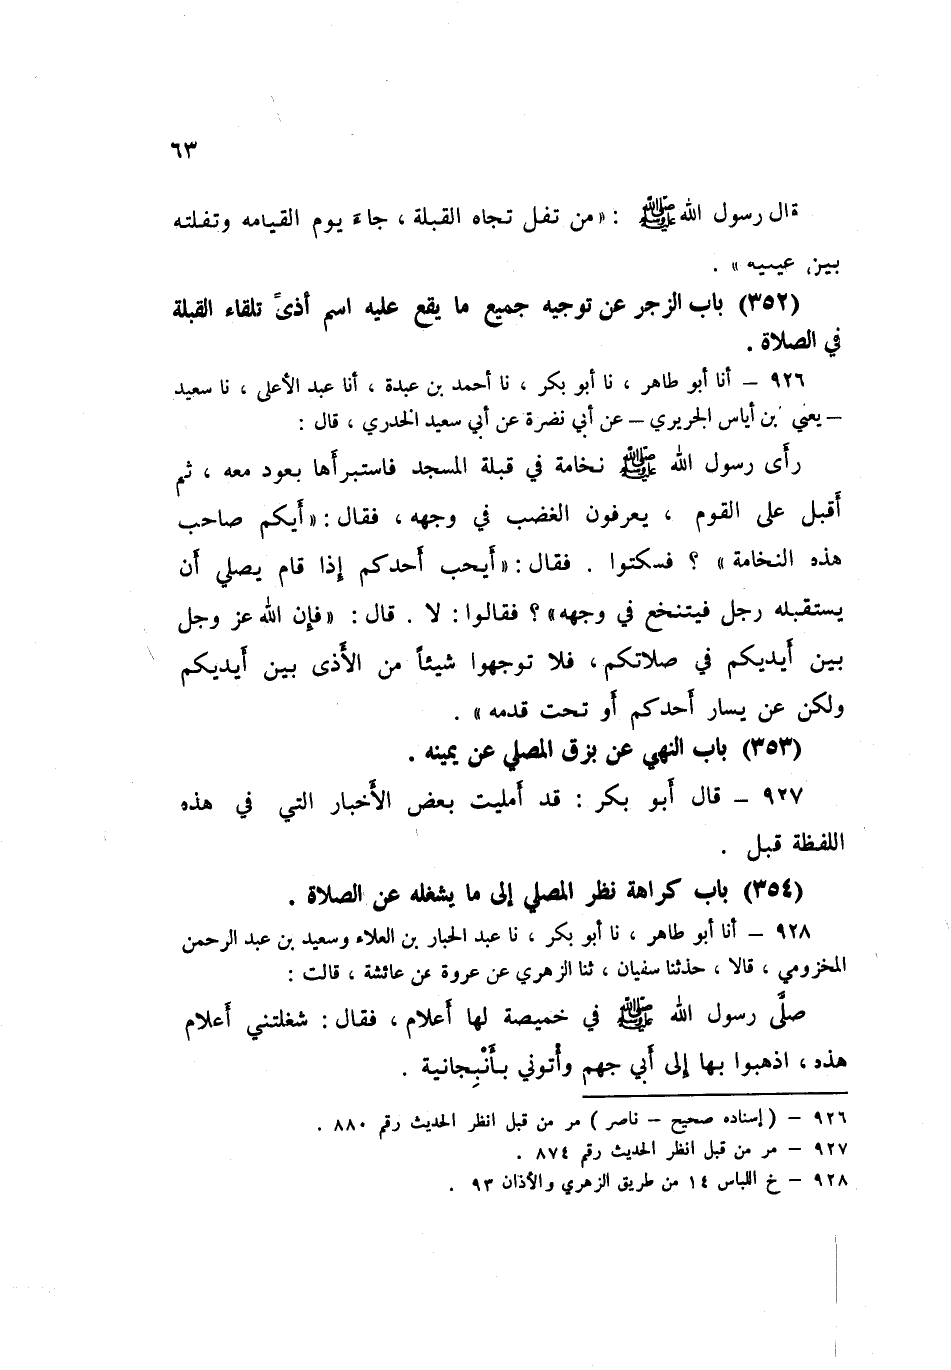 ٦٣
قال رسول الله ﷺ : «من تفل تجاه القبلة ، جاء يوم القيامه وتفلته
بين عينيه» .
(٣٥٢) باب الزجر عن توجيه جميع ما يقع عليه اسم أذىً تلقاء القبلة
في الصلاة .
٩٢٦ – أنا أبو طاهر ، نا أبو بكر ، نا أحمد بن عبدة ، أنا عبد الأعلى ، نا سعيد
– يعني بن أياس الجريري – عن أبي نضرة عن أبي سعيد الخدري ، قال :
رأى رسول الله ﷺ نخامة في قبلة المسجد فاستبرأها بعود معه ، ثم
أقبل على القوم ، يعرفون الغضب في وجهه ، فقال : «أيكم صاحب
هذه النخامة» ؟ فسكتوا . فقال : «أيحب أحدكم إذا قام يصلي أن
يستقبله رجل فيتنخع في وجهه» ؟ فقالوا : لا . قال : «فإن الله عز وجل
بين أيديكم في صلاتكم ، فلا توجهوا شيئاً من الأذى بين أيديكم
ولكن عن يسار أحدكم أو تحت قدمه» .
(٣٥٣) باب النهي عن بزق المصلي عن يمينه .
٩٢٧ – قال أبو بكر : قد أمليت بعض الأخبار التي في هذه
اللفظة قبل .
(٣٥٤) باب كراهة نظر المصلي إلى ما يشغله عن الصلاة .
٩٢٨ – أنا أبو طاهر ، نا أبو بكر ، نا عبد الجبار بن العلاء وسعيد بن عبد الرحمن
المخزومي ، قالا ، حدثنا سفيان ، ثنا الزهري عن عروة عن عائشة ، قالت :
صلَّى رسول الله ﷺ في خميصة لها أعلام ، فقال : شغلتني أعلام
هذه ، اذهبوا بها إلى أبي جهم وأْتوني بأَنْبِجانية .
٩٢٦ – ( إسناده صحيح – ناصر ) مر من قبل انظر الحديث رقم ٨٨٠ .
٩٢٧ – مر من قبل انظر الحديث رقم ٨٧٤ .
٩٢٨ – خ اللباس ١٤ من طريق الزهري والأذان ٩٣ .